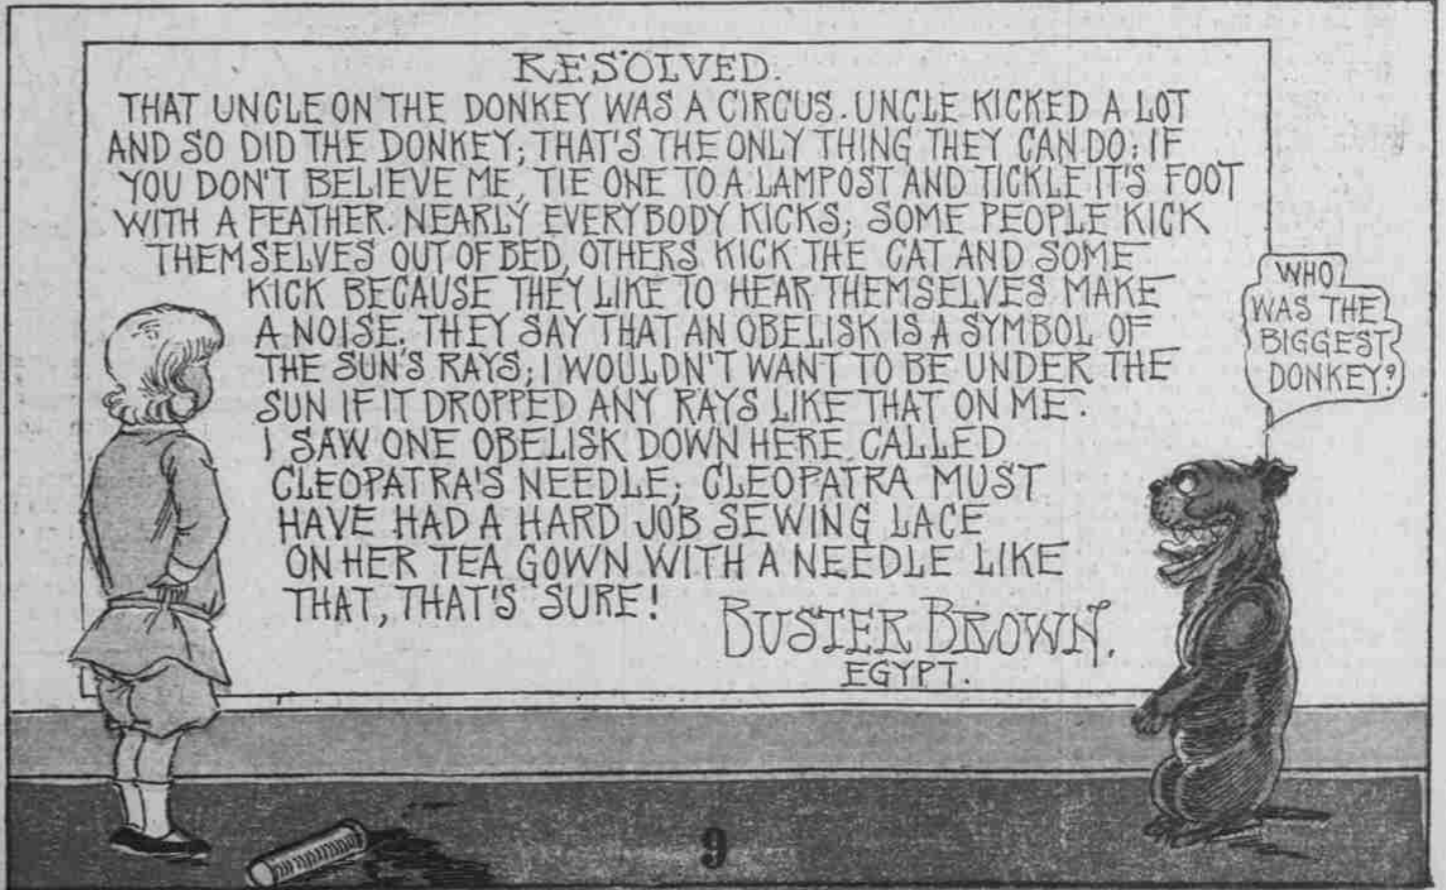 RESOLVED.
THAT UNCLE ON THE DONKEY WAS A CIRCUS. UNCLE KICKED A LOT
AND SO DID THE DONKEY; THAT'S THE ONLY THING THEY CAN DO; IF
YOU DON'T BELIEVE ME, TIE ONE TO A LAMPOST AND TICKLE IT'S FOOT
WITH A FEATHER. NEARLY EVERYBODY KICKS; SOME PEOPLE KICK
THEMSELVES OUT OF BED, OTHERS KICK THE CAT AND SOME
KICK BECAUSE THEY LIKE TO HEAR THEMSELVES MAKE
A NOISE. THEY SAY THAT AN OBELISK IS A SYMBOL OF
THE SUN'S RAYS; I WOULDN'T WANT TO BE UNDER THE
SUN IF IT DROPPED ANY RAYS LIKE THAT ON ME.
I SAW ONE OBELISK DOWN HERE CALLED
CLEOPATRA'S NEEDLE; CLEOPATRA MUST
HAVE HAD A HARD JOB SEWING LACE
ON HER TEA GOWN WITH A NEEDLE LIKE
THAT, THAT'S SURE!
BUSTER BROWN.
EGYPT.
WHO
WAS THE
BIGGEST
DONKEY?
9